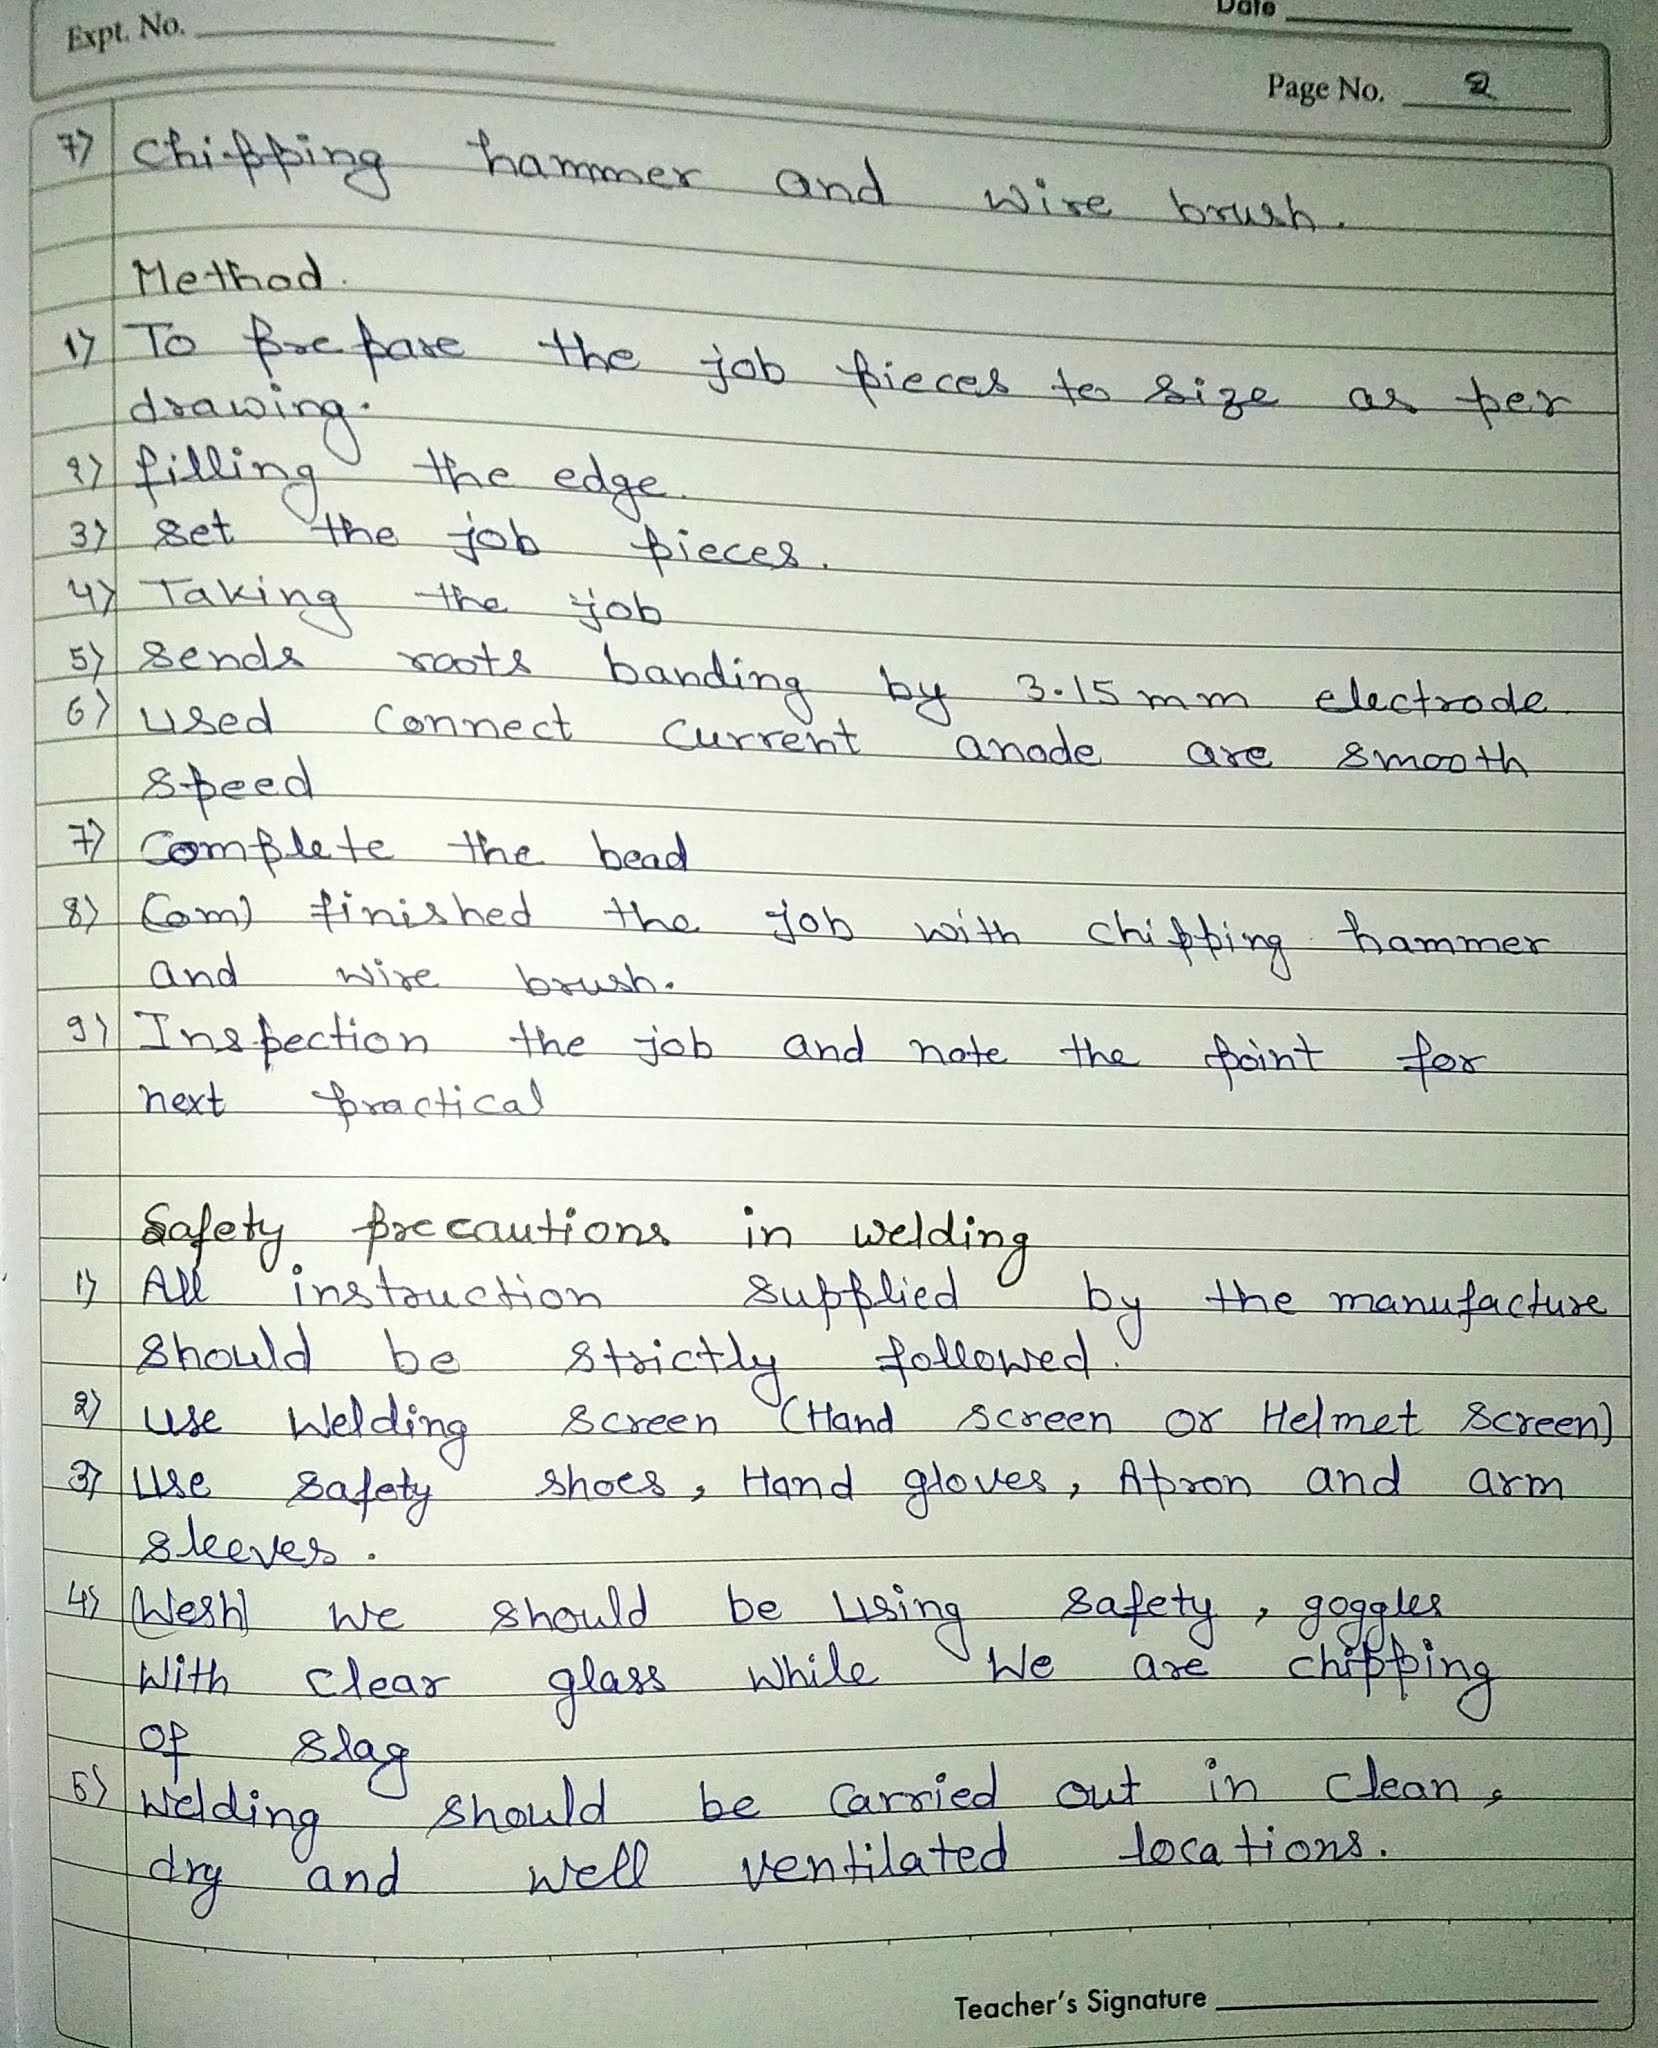 Expt. No.
Date
Page No. 2
7) Chipping hammer and wire brush.
Method.
1) To prepare the job pieces to size as per
drawing.
2) filling the edge.
3) Set the job pieces.
4) Taking the job
5) Sends roots banding by 3.15 mm electrode.
6) used connect current anode are smooth
speed
7) Complete the bead
8) (om) finished the job with chipping hammer
and wire brush.
9) Inspection the job and note the point for
next practical
Safety precautions in welding
1) All instruction supplied by the manufacture
should be strictly followed.
2) use Welding screen (Hand screen or Helmet screen)
3) Use safety shoes, Hand gloves, Apron and arm
sleeves.
4) (Wesh) We should be using safety, goggles
With clear glass while We are chipping
of slag
5) Welding should be carried out in clean,
dry and well ventilated locations.
Teacher's Signature